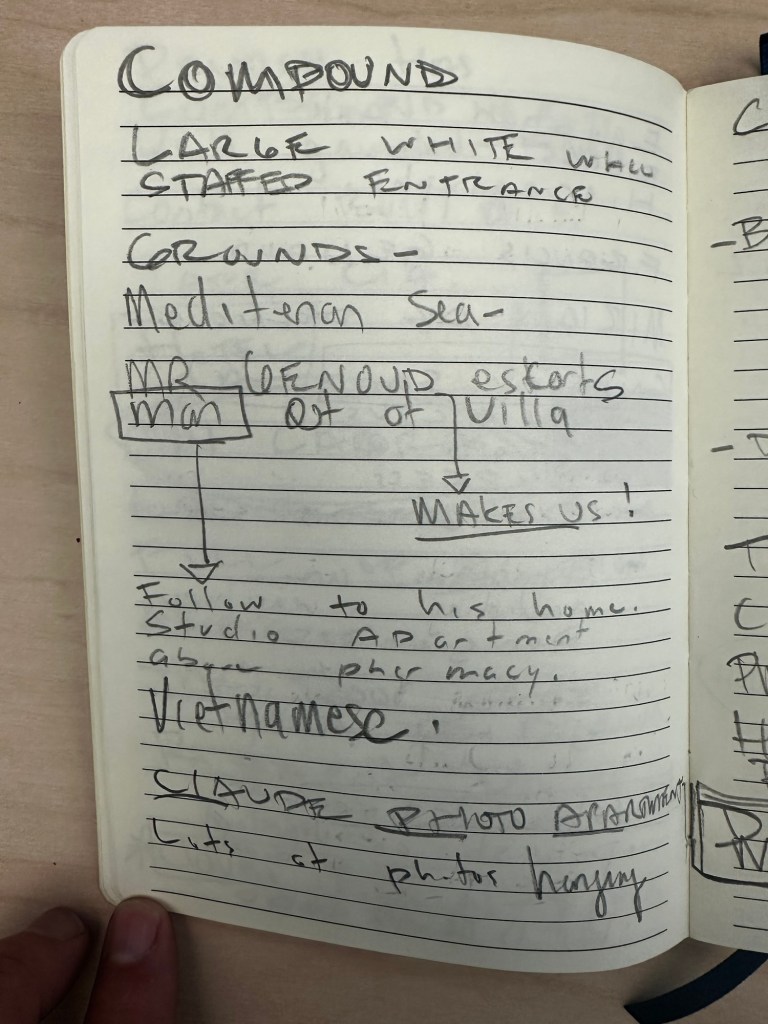 COMPOUND
LARGE WHITE WALL
STAFFED ENTRANCE
GROUNDS -
Mediterean Sea -
MR GENOUD eskorts
man Out of Villa
MAKES US!
Follow to his home.
Studio Apartment
above pharmacy.
Vietnamese.
CLAUDE PHOTO APARTMENT
Lots of photos hanging
C
- B
-
T
C
H